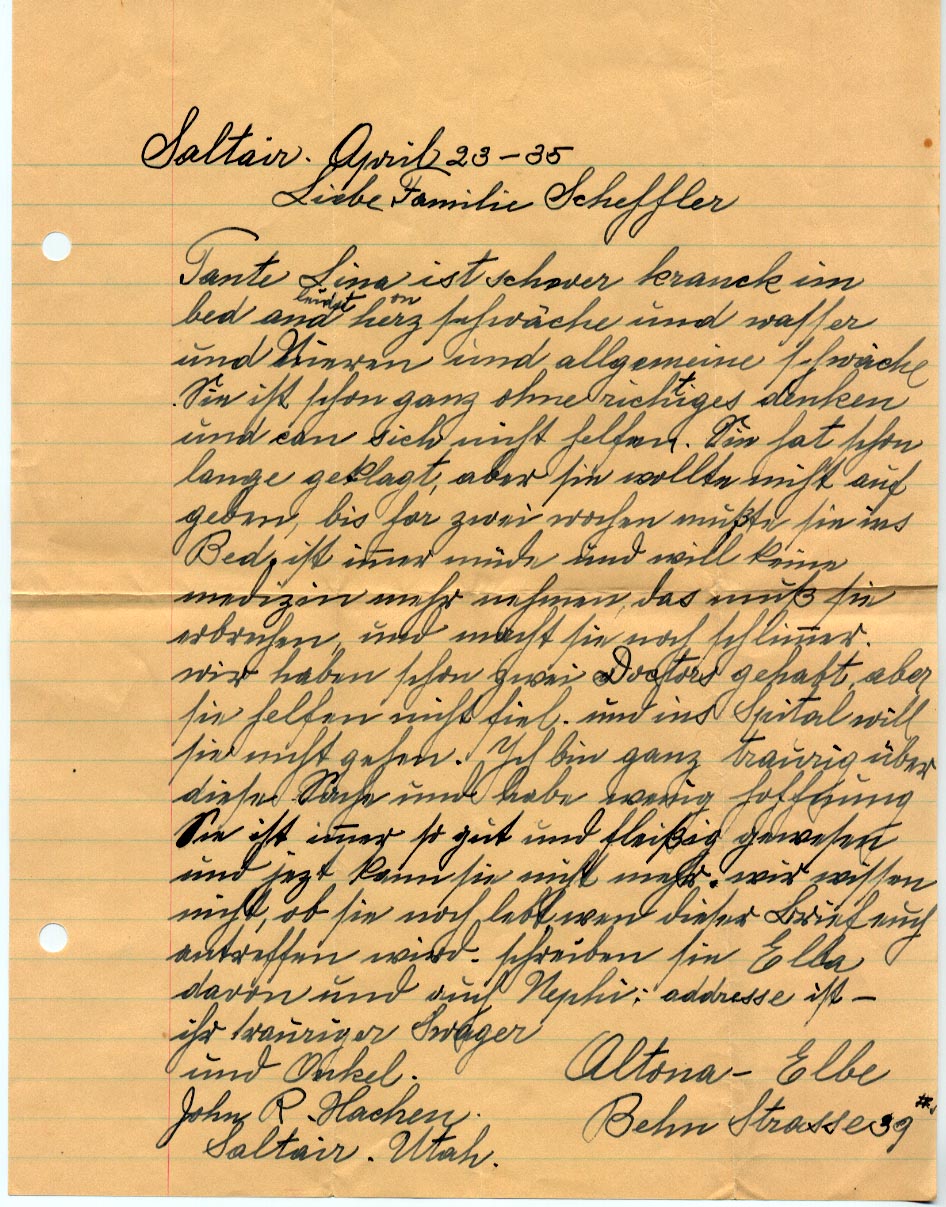 Saltair. April 23-35
Liebe Familie Scheffler
Tante Lina ist schwer kranck im
leidet on
bed and herz schwäche und wasser
und Nieren und allgemeine schwäche
Sie ist schon ganz ohne richtiges denken
und can sich nicht helfen. Sie hat schon
lange geklagt, aber sie wollte nicht auf
geben, bis for zwei wochen mußte sie ins
Bed, ist im̄er müde und will keine
medizin mehr nehmen, das muß sie
erbrechen, und macht sie noch schlim̄er.
wir haben schon zwei Doctors gehabt, aber
sie helfen nicht fiel. und ins Spital will
sie nicht gehen. Ich bin ganz traurig über
diese Sache und habe wenig hoffnung
Sie ist im̄er so gut und fleißig gewesen
und jezt kann sie nicht mehr. wir wissen
nicht, ob sie noch lebt, wen dieser Brief euch
antreffen wird. schreiben sie Ella
davon und auch Nephi: addresse ist -
ihr trauriger Swager
und Onkel.
Altona - Elbe
John R. Hachen.
Behn Strasse 39
Saltair. Utah.